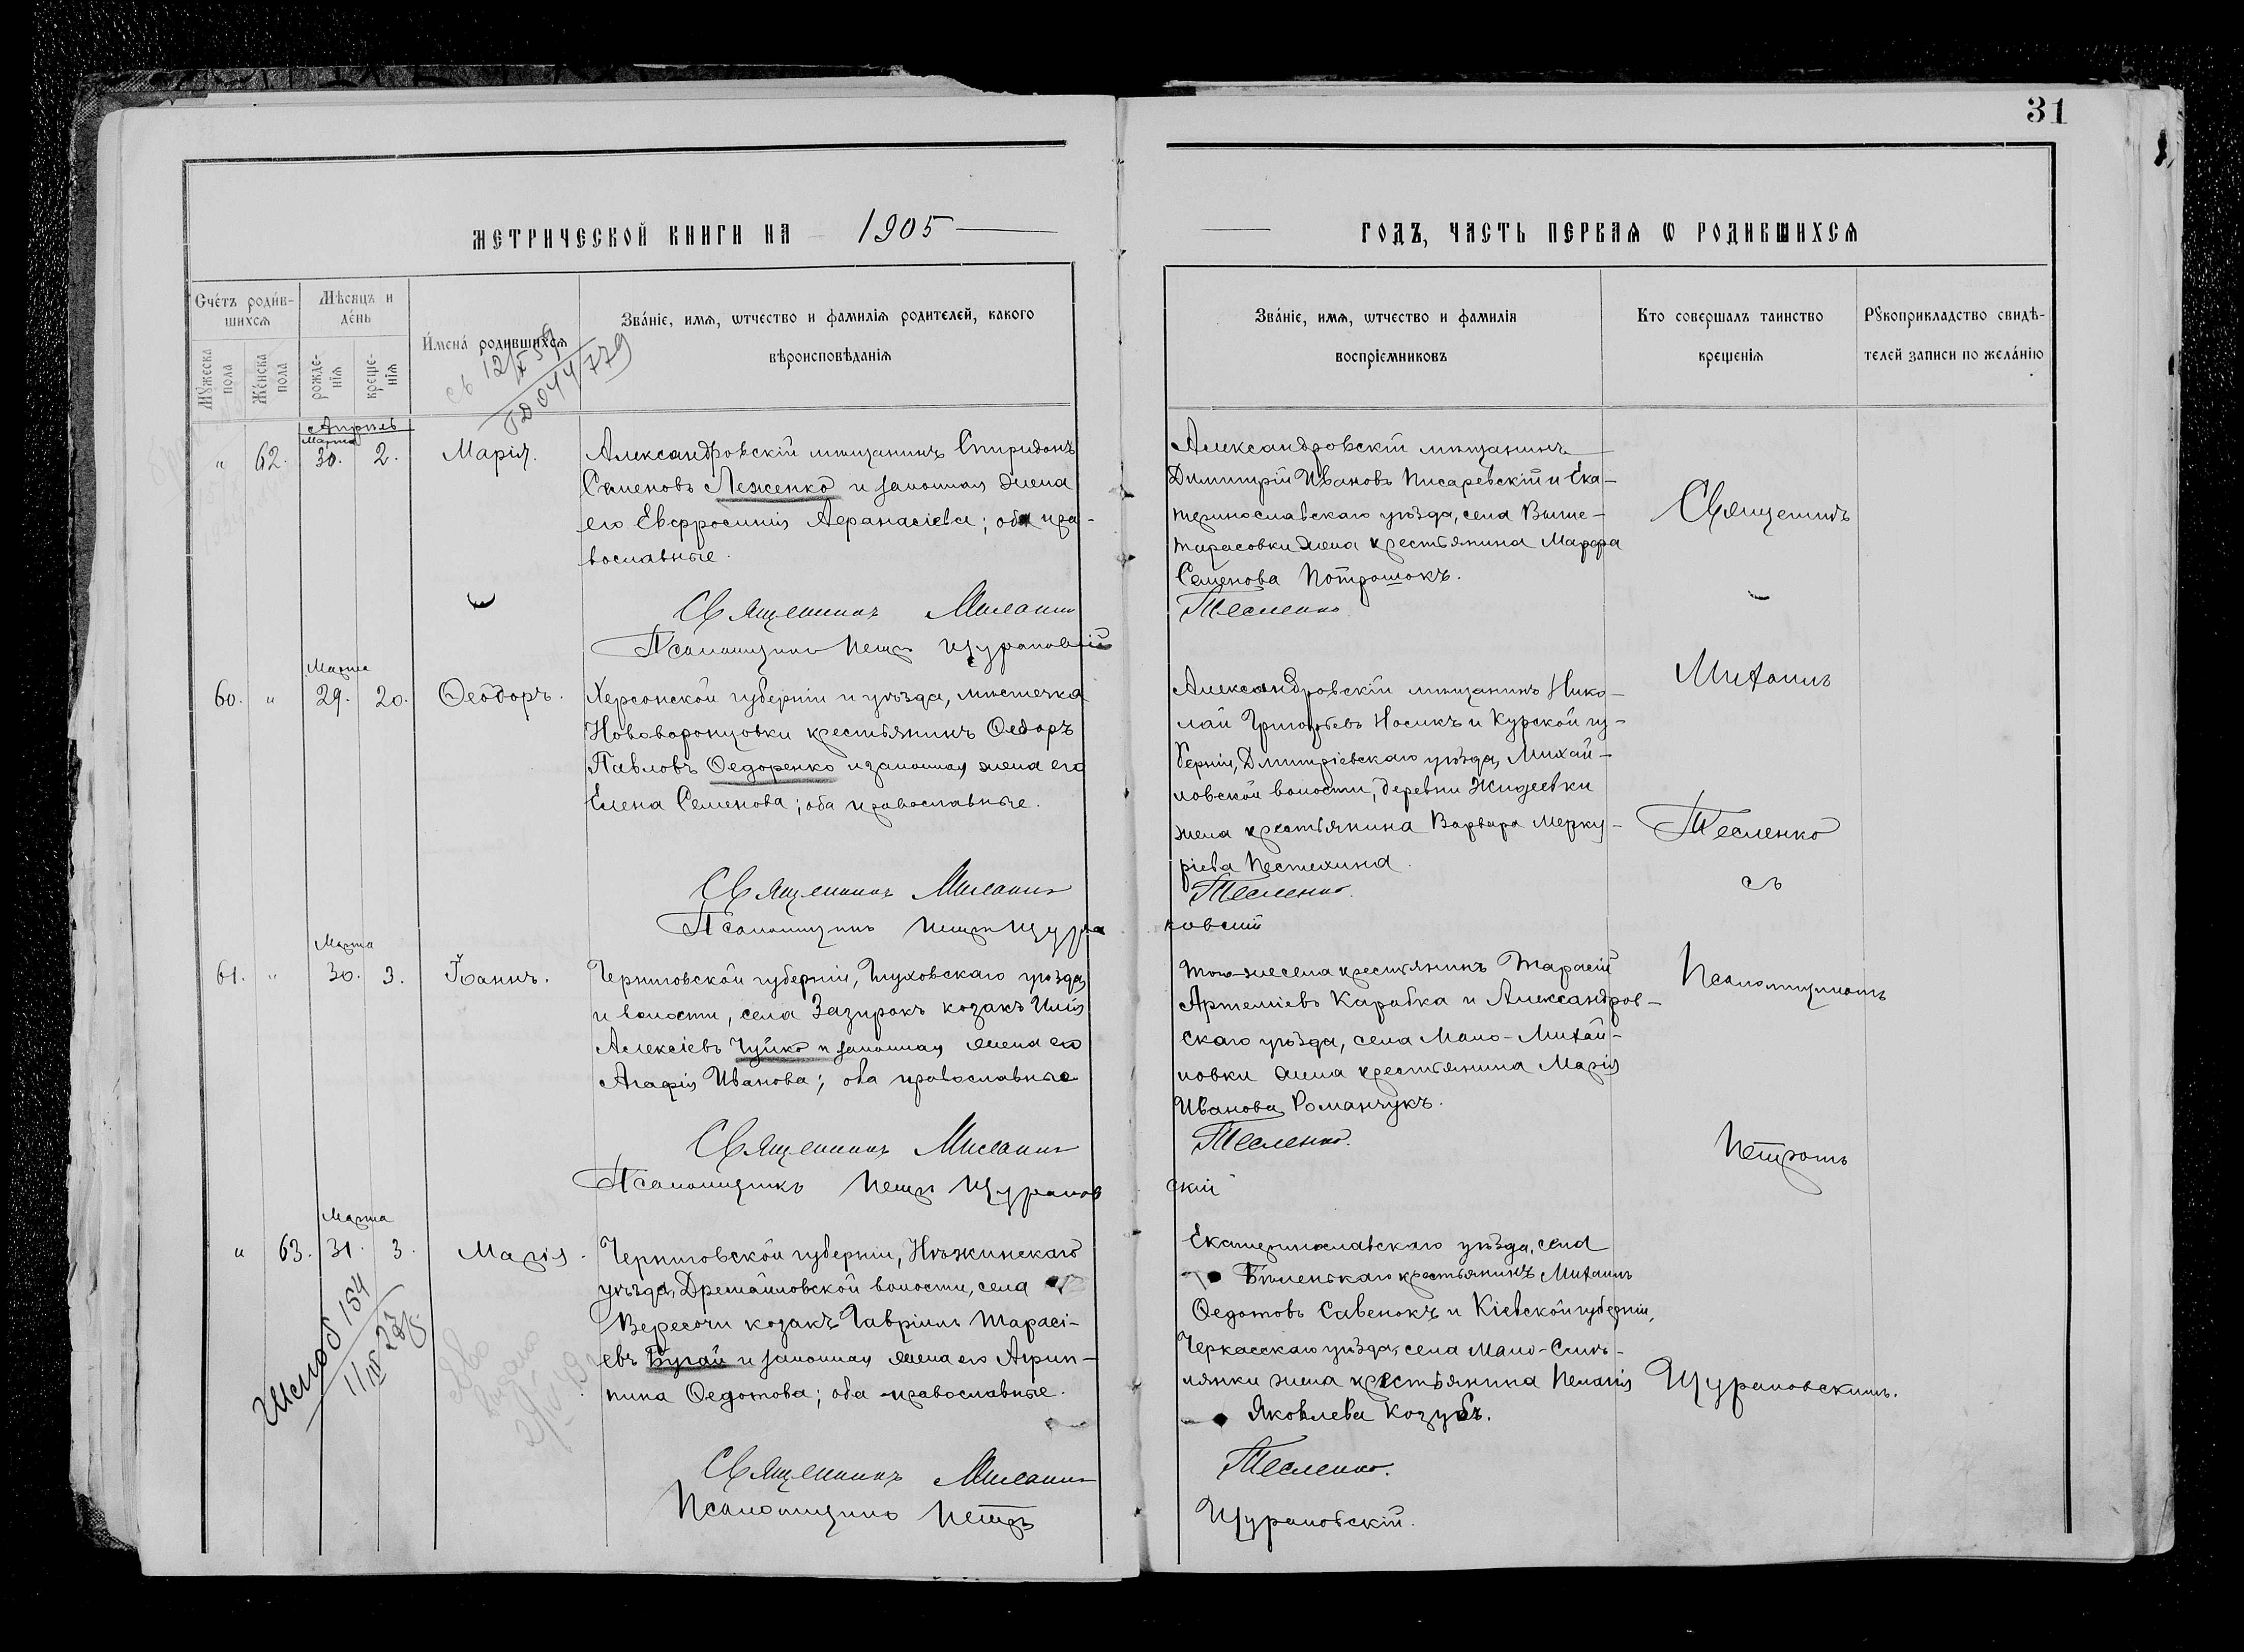 31
МЕТРИЧЕСКОЙ КНИГИ НА 1905
ГОДЪ, ЧАСТЬ ПЕРВАЯ Ѡ РОДИВШИХСЯ
Счетъ родив-
шихся
Мѣсяцъ и
день
Мужеска
пола
Женска
пола
рожде-
нія
креще-
нія
Имена родившихся
Званіе, имя, ѡтчество и фамилія родителей, какого
вѣроисповѣданія
Званіе, имя, ѡтчество и фамилія
воспріемниковъ
Кто совершалъ таинство
крещенія
Рукоприкладство свидѣ-
телей записи по желанію
Апрѣль
Марта
" 62. 30. 2. Марія.
Александровскій мѣщанинъ Спиридонъ
Семеновъ Леженко и законная жена
его Евфросинія Аѳанасіева; оба пра-
вославные.
Священникъ Михаилъ
Псаломщикъ Петръ Щурановскій
Александровскій мѣщанинъ
Димитрій Ивановъ Писаревскій и Ека-
теринославскаго уѣзда, села Выше-
тарасовки жена крестьянина Марфа
Семенова Потрошокъ.
Тесленко
Марта
60. " 29. 20. Ѳеодоръ.
Херсонской губерніи и уѣзда, мѣстечка
Нововоронцовки крестьянинъ Ѳедоръ
Павловъ Ѳедоренко и законная жена его
Елена Семенова; оба православные.
Священникъ Михаилъ
Псаломщикъ Петръ Щура
Александровскій мѣщанинъ Нико-
лай Григорьевъ Носикъ и Курской гу-
берніи, Дмитріевскаго уѣзда, Михай-
ловской волости, деревни Жидеевки
жена крестьянина Варвара Мерку-
ріева Пестехина.
Тесленко.
новскій
Марта
61. " 30. 3. Іоаннъ.
Черниговской губерніи, Глуховскаго уѣзда
и волости, села Зазирокъ козакъ Илія
Алексіевъ Чуйко и законная жена его
Агафія Иванова; оба православные
Священникъ Михаилъ
Псаломщикъ Петръ Щуранов
того-же села крестьянинъ Тарасій
Артеміевъ Карабка и Александров-
скаго уѣзда, села Мало-Михай-
ловки жена крестьянина Марія
Иванова Романчукъ.
Тесленко.
скій
Марта
" 63. 31. 3. Марія.
Черниговской губерніи, Нѣжинскаго
уѣзда, Дремайловской волости, села
Вересочи козакъ Гавріилъ Тарасі-
евъ Бугай и законная жена его Агрип-
пина Ѳедотова; оба православные.
Священникъ Михаилъ
Псаломщикъ Петръ
Екатеринославскаго уѣзда, села
Бѣленькаго крестьянинъ Михаилъ
Ѳедотовъ Савенокъ и Кіевской губерніи,
Черкасскаго уѣзда, села Мало-Смѣ-
лянки жена крестьянина Пелагія
Яковлева Козубъ.
Тесленко.
Щурановскій.
Священникъ
Михаилъ
Тесленко
съ
Псаломщикомъ
Петромъ
Щурановскимъ.